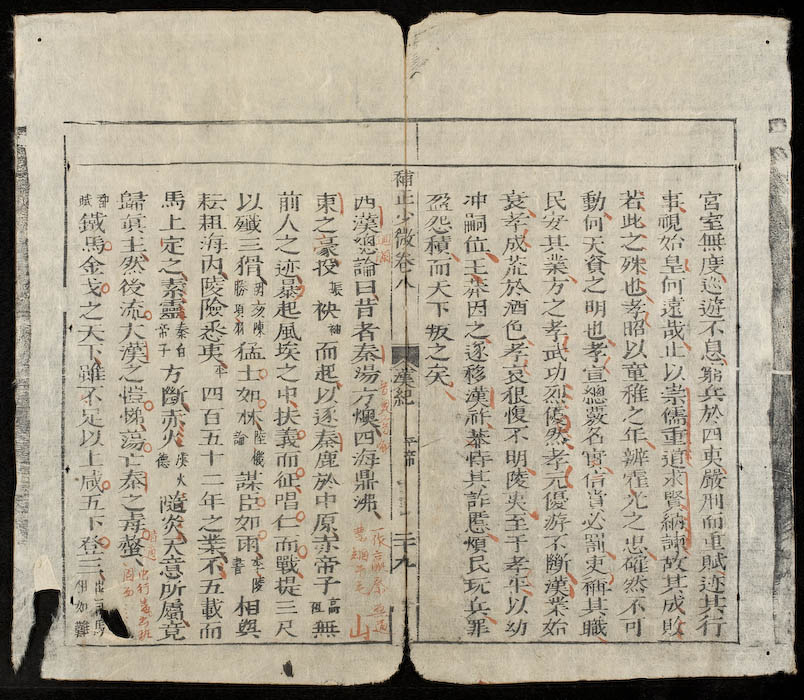 宮室無度巡遊不息窮兵於四夷嚴刑而重賦迹其行
事視始皇何遠哉止以崇儒重道求賢納諫故其成敗
若此之殊也孝昭以童稚之年辨霍光之忠確然不可
動何天資之明也孝宣總覈名實信賞必罰吏稱其職
民安其業方之孝武功烈優然孝元優游不斷漢業始
衰孝成荒於酒色孝哀狠愎不明陵夷至于孝平以幼
冲嗣位王莽因之遂移漢祚莽恃其詐慝煩民玩兵罪
盈怨積而天下叛之矣
補正少微卷八 漢紀 平帝 三十九
西漢總論曰昔者秦湯方燠四海鼎沸
東之豪投袂袖而起以逐秦鹿於中原赤帝子高祖無
前人之迹暴起風埃之中扶義而征唱仁而戰提三尺
以殲三猾胡亥陳勝項籍猛士如林陸機論謀臣如雨李陵書相與
耘耡海内陵險悉夷平四百五十二年之業不五載而
馬上定之素靈秦白帝子方斷赤炎漢火德隨炎天意所屬竟
歸眞主然後流大漢之愷悌蕩亡秦之毒螫
晉賦鐵馬金戈之天下雖不足以上咸五下登三司馬相如難